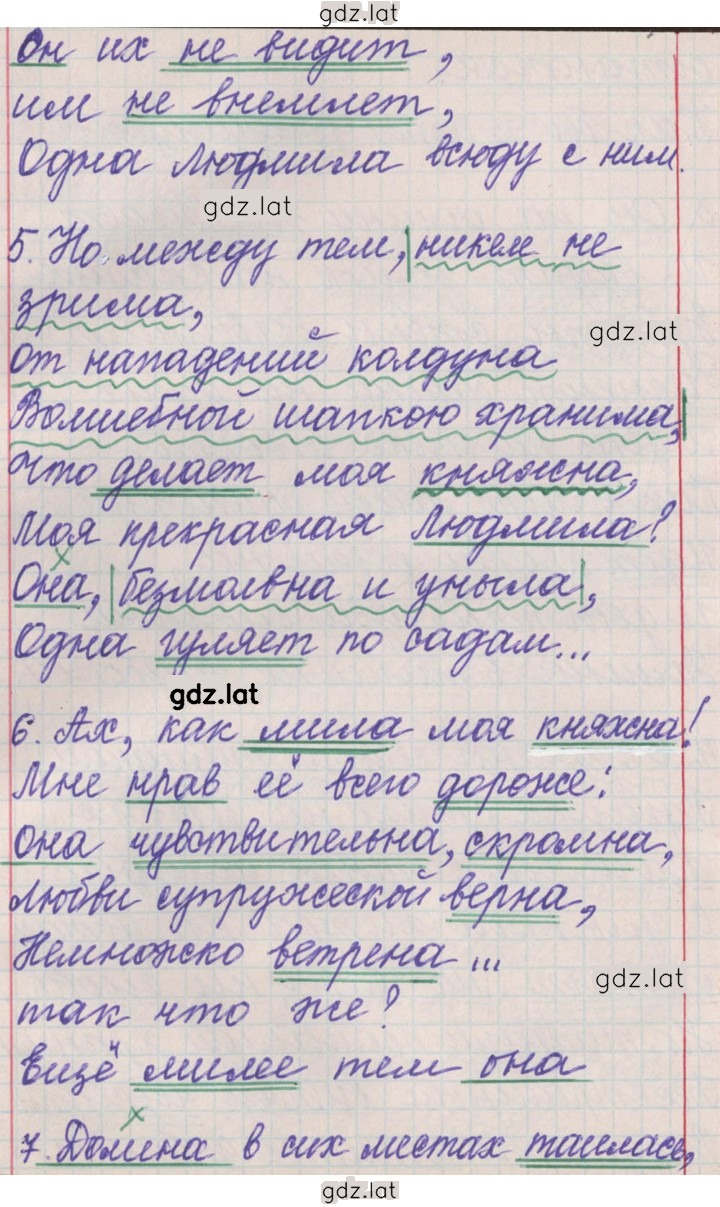 gdz.lat
Он их не видит,
им не внемлет,
Одна Людмила всюду с ним.
gdz.lat
5. Но между тем, никем не
зрима,
gdz.lat
от нападений колдуна
Волшебной шапкою хранима,
Что делает моя княжна,
Моя прекрасная Людмила?
Она, безмолвна и уныла,
Одна гуляет по садам...
gdz.lat
6. Ах, как мила моя княжна!
Мне нрав её всего дороже:
она чувствительна, скромна,
Любви супружеской верна,
Немножко ветрена...
gdz.lat
так что же?
Ещё милее тем она
7. Долина в сих местах таилась,
gdz.lat